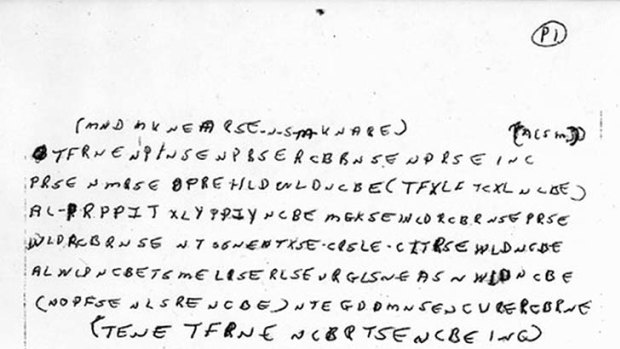 P1
(MND MKNEARSE-N-S-M-KNARE) (ACSM)
TFRNENPINSENPRSERCBRNSENPRSEINC
PRSENMRSEOPREHLDWLDNCBE(TFXLFTCXLNCBE)
AL-PRPPITXLYPPIYNCBEMGKSEINCDRCBRNSEPRSE
WLDRCBRNSENTSSNENTXSE-CRSLE-CITRSEWLDNCBE
ALWLPNCBETSMELRSERLSEURGLSNEASNWLDNCBE
(NOPFSENLSRENCBE)NTEGDDMNSENCURERCBRNE
(TENETFRNENCBRTSENCBEING)